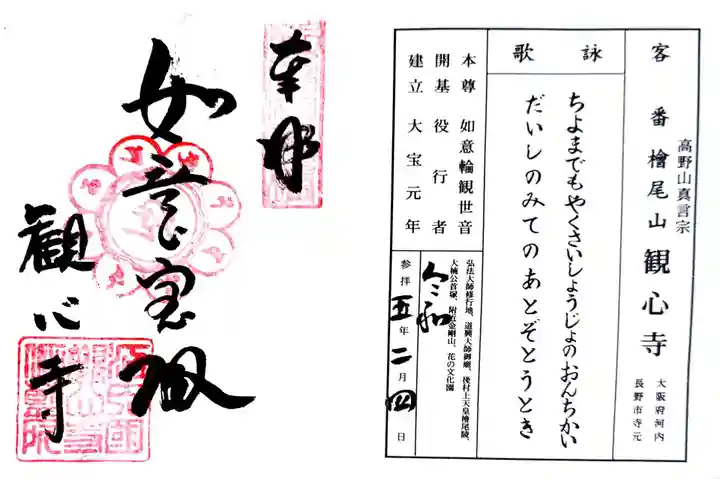 高野山真言宗
客番 檜尾山 観心寺
大阪府河内
長野市寺元
詠歌
ちよまでもやくさいしょうじょのおんちかい
だいしのみてのあとぞとうとき
本尊 如意輪観世音
開基 役行者
建立 大宝元年
弘法大師修行地、道興大師御廟、後村上天皇檜尾陵、
大楠公首塚、附近金剛山、花の文化園
令和
参拝 五年二月四日
奉拝
如意宝殿
観心寺